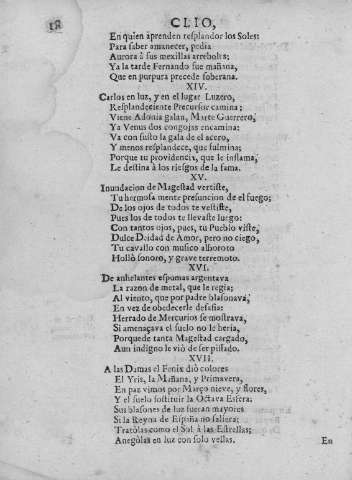 18
CLIO,
En quien aprenden resplandor los Soles:
Para saber amanecer, pedia
Aurora à sus mexillas arrebols:
Ya la tarde Fernando fue mañana,
Que en purpura precede soberana.
XIV.
Carlos en luz, y en el lugar Luzero,
Resplandeciente Precursor camina;
Viene Adonis galan, Marte Guerrero,
Ya Venus dos congojas encamina:
Va con susto la gala de el acero,
Y menos resplandece, que fulmina;
Porque tu providencia, que le inflama,
Le destina à los riesgos de la fama.
XV.
Inundacion de Magestad vertiste,
Tu hermosa mente presuncion de el fuego;
De los ojos de todos te vestiste,
Pues los de todos te llevaste luego:
Con tantos ojos, pues, tu Pueblo viste,
Dulce Deidad de Amor, pero no ciego,
Tu cavallo con musico alboroto
Hollò sonoro, y grave terremoto.
XVI.
De anhelantes espumas argentava
La razon de metal, que le regia;
Al viento, que por padre blasonava,
En vez de obedecerle desafia:
Herrado de Mercurios se mostrava,
Si amenaçava el suelo no le heria,
Porque de tanta Magestad cargado,
Aun indigno le viò de ser pisado.
XVII.
A las Damas el Fenix diò colores
El Yris, la Mañana, y Primavera,
En paz vimos por Março nieve, y flores,
Y el suelo sostituir la Octava Esfera:
Sus blasones de luz fueran mayores
Si la Reyna de España no saliera;
Tratòlas como el Sol à las Estrellas;
Anegòlas en luz con solo vellas.
En